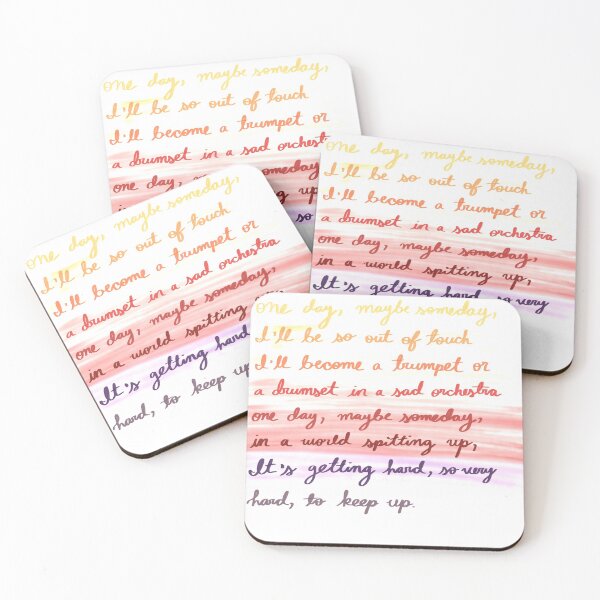 one day, maybe someday,
I'll be so out of touch
I'll become a trumpet or
a drumset in a sad orchestra
one day, someday
in up,
so
one day, maybe someday,
I'll be so out of touch
I'll become a trumpet or
a drumset in a sad orchestra
one day, maybe someday,
in a world spitting up,
It's getting hard, so very
one day, maybe someday,
I'll be so out of touch
I'll become a trumpet or
a drumset in a sad orchestra
one day, maybe someday,
in a world spitting
It's getting hard
hard, to keep up
one day, maybe someday,
I'll be so out of touch
I'll become a trumpet or
a drumset in a sad orchestra
one day, maybe someday,
in a world spitting up,
It's getting hard, so very
hard, to keep up.